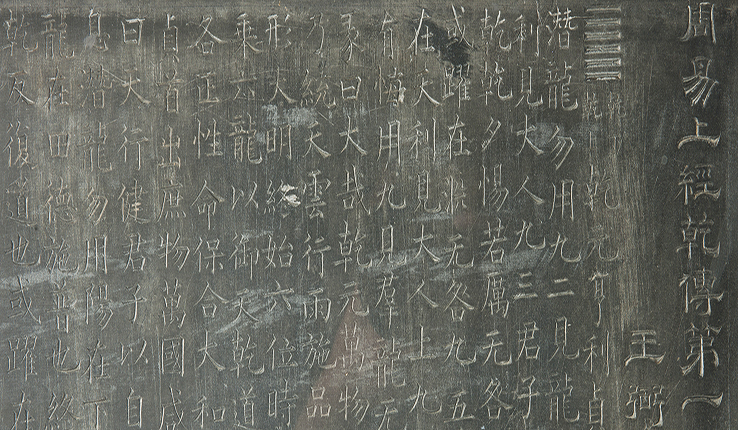 周易上經乾傳第一
王弼
䷀乾乾乾元亨利貞
潛龍勿用九二見龍
利見大人九三君子
乾乾夕惕若厲无咎
或躍在淵无咎九五
在天利見大人上九
有悔用九見羣龍无
彖曰大哉乾元萬物
乃統天雲行雨施品
形大明終始六位時
乘六龍以御天乾道
各正性命保合大和
貞首出庶物萬國咸
曰天行健君子以自
息潛龍勿用陽在下
龍在田德施普也終
乾反復道也或躍在